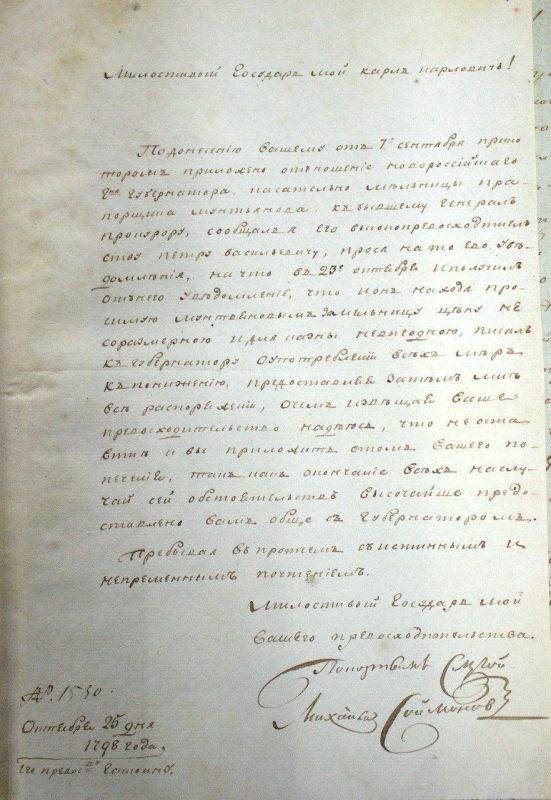 Милостивый Государь мой карлъ карловичь!
Подонесению вашему отъ 7го сентября прико
торомъ приложено отношение новороссийскаго
Губернатора, касательно мельницы пра
порщика мунтьянова, къбывшему Генералъ
прокурору, сообщалъ я его высокопревосходитель
ству петру васильевичу, прося на то его Уве
домления, на что въ 23е октября иполучилъ
отънего Уведомление, что ионъ находя про
симую мунтьяновымъ замельницу цену не
соразмерною идля казны невыгодною, писалъ
къ Губернатору оупотреблении всехъ меръ
къпонижению, предоставляя затемъ мне
все распоряжении, очемъ извещая ваше
превосходительство надеюсь, что не оста
вите и вы приложить отомъ вашего по
печения, такъ какъ окончание всехъ наслу
чай сей обстоятельствъ высочайше предо
ставлено вамъ обще съ Губернаторомъ.
Пребывая въпротчемъ съистиннымъ и
непременнымъ почтениемъ.
Милостивый Государь мой
вашего превосходительства.
Покорный слуга
Михайла Соймоновъ
№. 1530.
Октября 25 дня
1798 года,
Его превосход:ву Гаскоину.